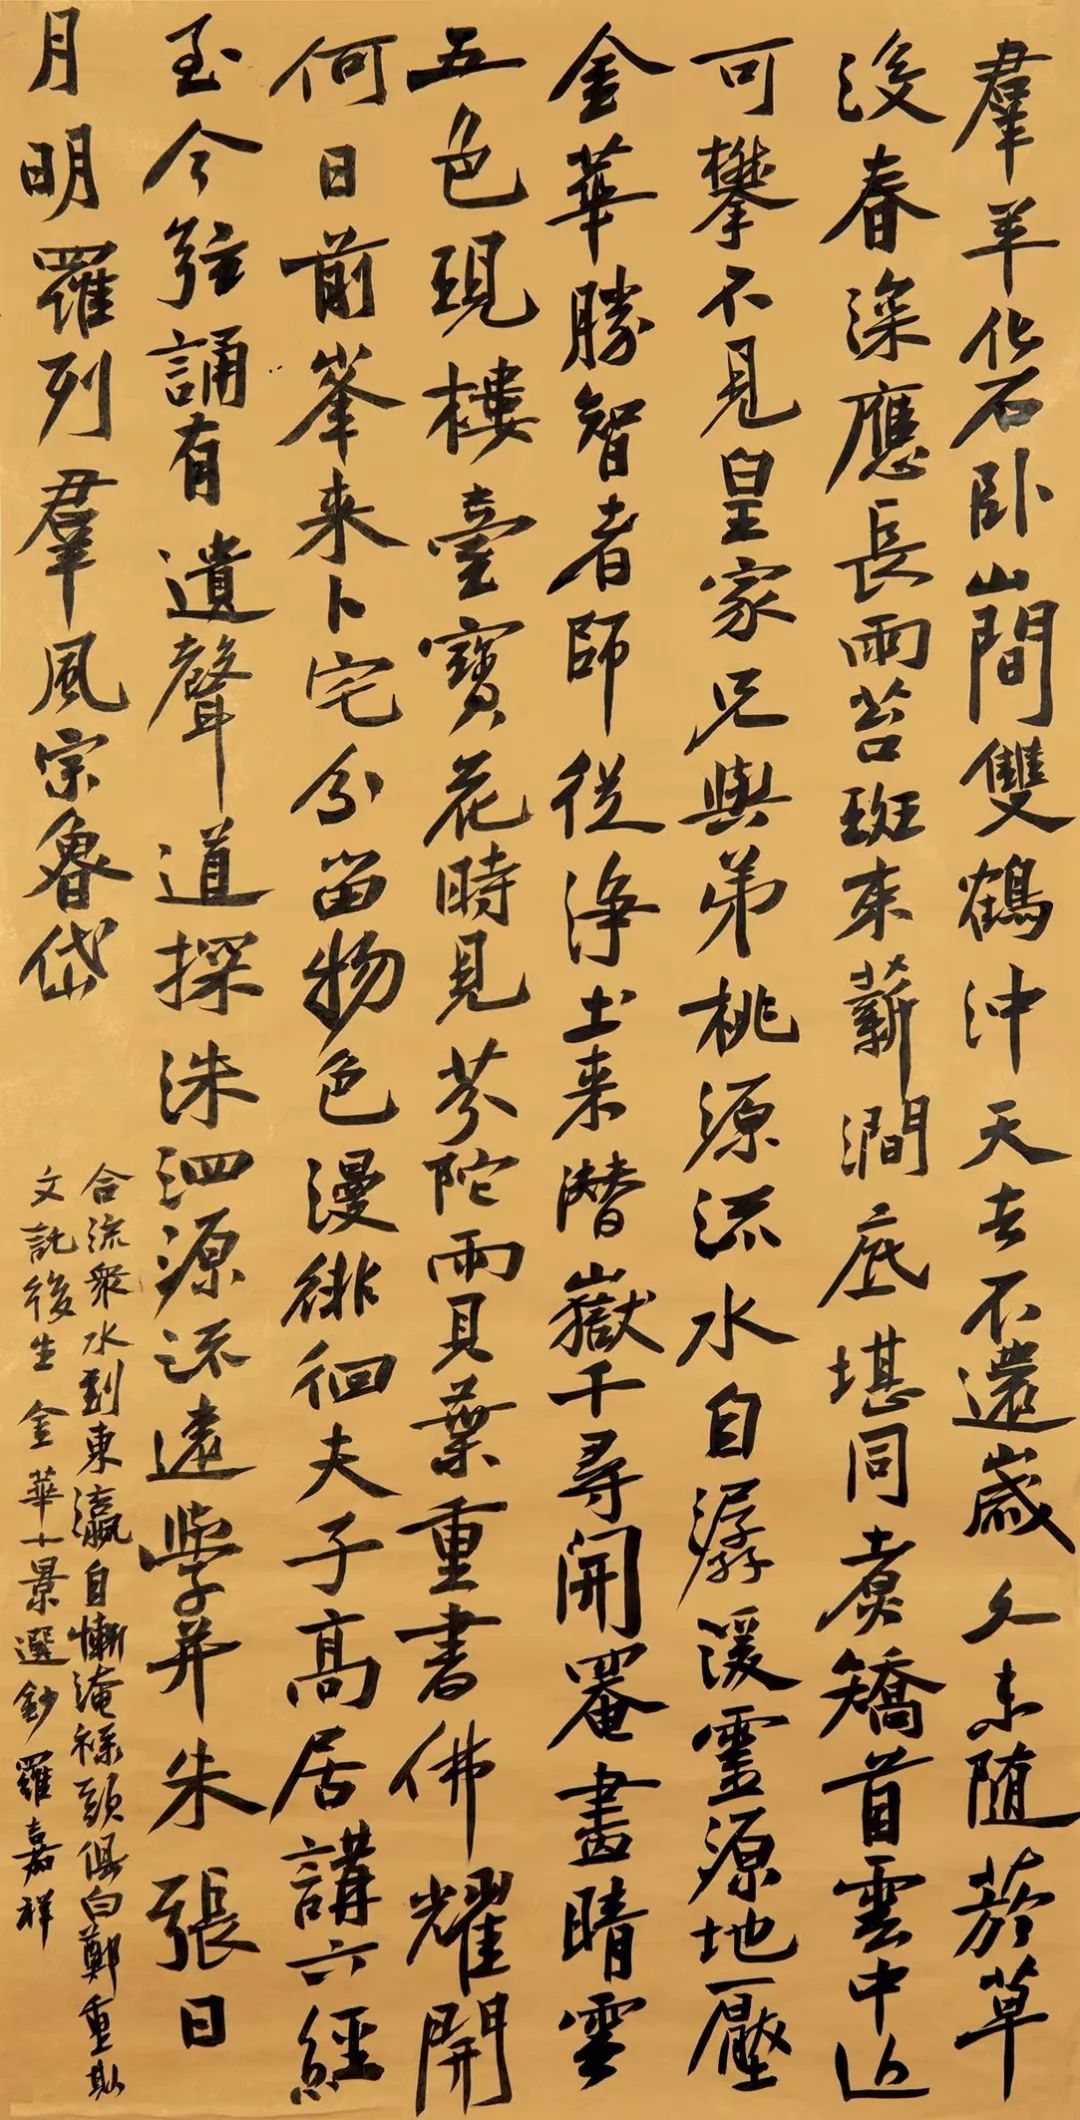 羣羊化石卧山間雙鶴沖天去不還歲久未隨芳草
没春深應長雨苔斑束薪澗底堪同煮矯首雲中近
可攀不見皇家兄與弟桃源流水自潺湲靈源地壓
金華勝智者師從淨土来潛嶽千尋開罨畫晴雲
五色現樓臺寶花時見芬陀雨貝葉重書佛耀開
何日前峯来卜宅分留物色漫徘徊夫子高居講六經
至今弦誦有遺聲道探洙泗源流遠學并朱張日
月明羅列羣風宗魯岱
合流衆水到東瀛自慚淹祿頭俱白鄭重斯
文託後生 金華十景選鈔 羅嘉祥